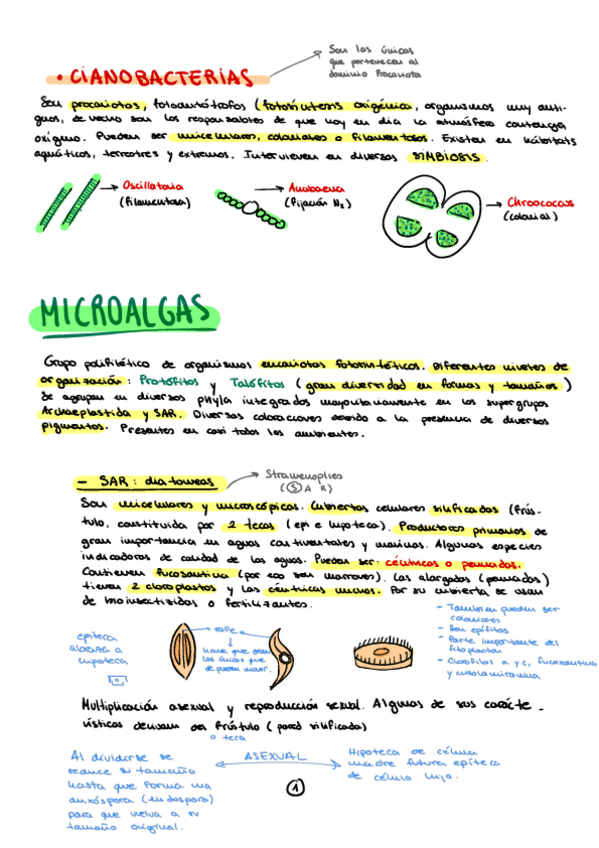 Son las únicas
que pertenecen al
dominio Procariota
• CIANOBACTERIAS
Son procariotas, fotoautótrofos (fotosíntesis oxigénica, organismos muy anti-
guos, de hecho son los responsables de que hoy en día la atmósfera contenga
oxígeno. Pueden ser unicelulares, coloniales o filamentosos. Existen en hábitats
aquáticos, terrestres y extremos. Intervienen en diversas SIMBIOSIS.
Oscillatoria
(filamentosa)
Anabaena
(Fijación N₂)
Chroococcus
(colonial)
MICROALGAS
Grupo polifilético de organismos eucariotas fotosintéticos. Diferentes niveles de
organización: Protófitos y Talófitos (gran diversidad en formas y tamaños)
Se agrupan en diversos phyla integrados mayoritariamente en los supergrupos
Archaeplastida y SAR. Diversas coloraciones debido a la presencia de diversos
pigmentos. Presentes en casi todos los ambientes.
- SAR: diatomeas
Stramenopiles
(S A R)
Son unicelulares y microscópicas. Cubiertas celulares silificadas (frús-
tulo, constituida por 2 tecas (epi e hipoteca). Productores primarios de
gran importancia en aguas continentales y marinas. Algunas especies
indicadoras de calidad de las aguas. Pueden ser: céntricas o pennadas.
Contienen fucoxantina (por eso son marrones). Las alargadas (pennadas)
tienen 2 cloroplastos y las céntricas muchos. Por su cubierta se usan
de bioinsecticidas o fertilizantes.
- También pueden ser
coloniales
- Son epífitos
- Parte importante del
fitoplacton
- Clorofilas a y c, fucoxantina
y crisolaminarina
epiteca
abraza a
hipoteca
rafe
hace que sean
las únicas que
se pueden mover.
Multiplicación asexual y reproducción sexual. Algunas de sus caracte-
rísticas derivan del frústulo (pared silificada)
o teca
Al dividirse se
reduce su tamaño
hasta que forma una
auxóspora (endospora)
para que vuelva a su
tamaño original.
ASEXUAL
Hipoteca de célula
madre futura epiteca
de célula hija.
1